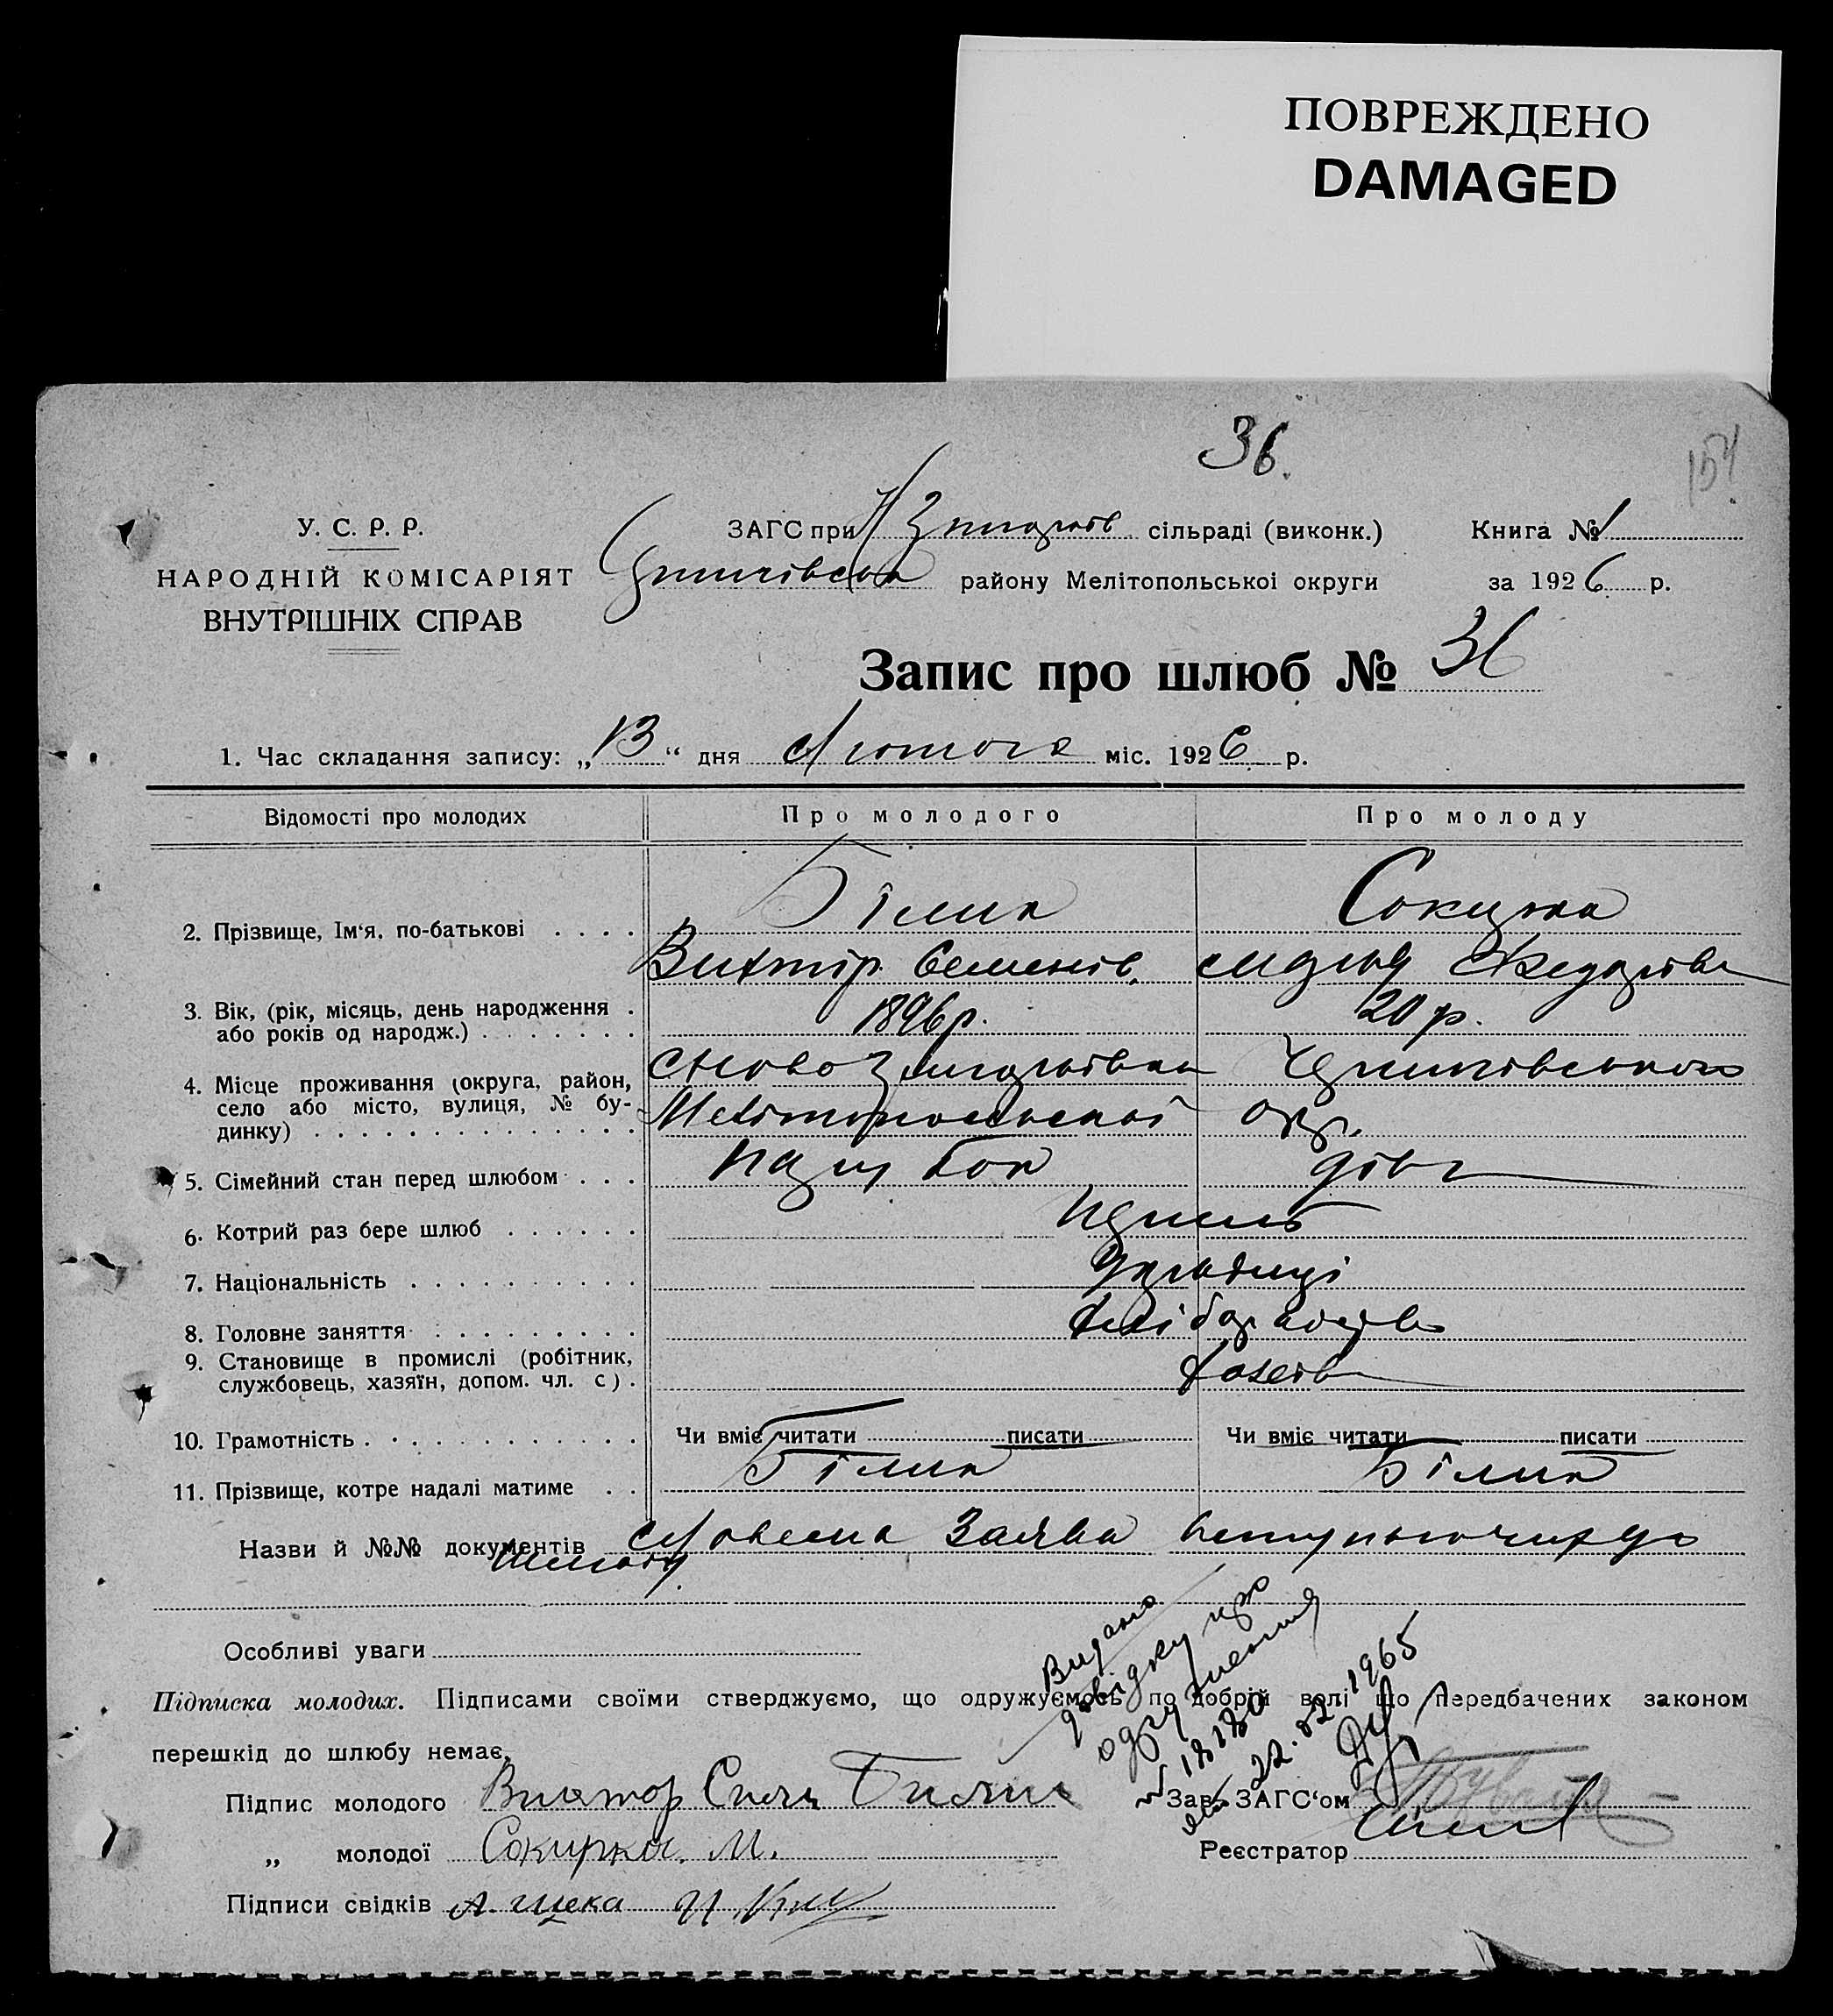 ПОВРЕЖДЕНО
DAMAGED
36.
154
У. С. Р. Р.
НАРОДНІЙ КОМІСАРІЯТ
ВНУТРІШНІХ СПРАВ
ЗАГС при сільраді (виконк.) Книга № 1
району Мелітопольської округи за 1926 р.
Запис про шлюб № 36
1. Час складання запису: „13" дня Лютого міс. 1926 р.
Відомості про молодих Про молодого Про молоду
2. Прізвище, Ім'я, по-батькові Білик Сокирка
Віктір Семенів.
3. Вік, (рік, місяць, день народження або років од народж.) 1896 р. 20 р.
4. Місце проживання (округа, район, село або місто, вулиця, № будинку)
Мелітопольської окр.
5. Сімейний стан перед шлюбом парубок дівк
6. Котрий раз бере шлюб
7. Національність Українці
8. Головне заняття Хліборобство
9. Становище в промислі (робітник, службовець, хазяїн, допом. чл. с).
10. Грамотність Чи вміє читати писати Чи вміє читати писати
11. Прізвище, котре надалі матиме Білик Білик
Назви й №№ документів Словесна Заява вступаючих до
шлюбу.
Особливі уваги
Видано
довідку про
одруження
18180
22.02.1965
Підписка молодих. Підписами своїми стверджуємо, що одружуємось по добрій волі що передбачених законом
перешкід до шлюбу немає.
Підпис молодого Виктор Билик Зав. ЗАГС'ом
„ молодої Сокирка. М. Реєстратор
Підписи свідків А. Щека